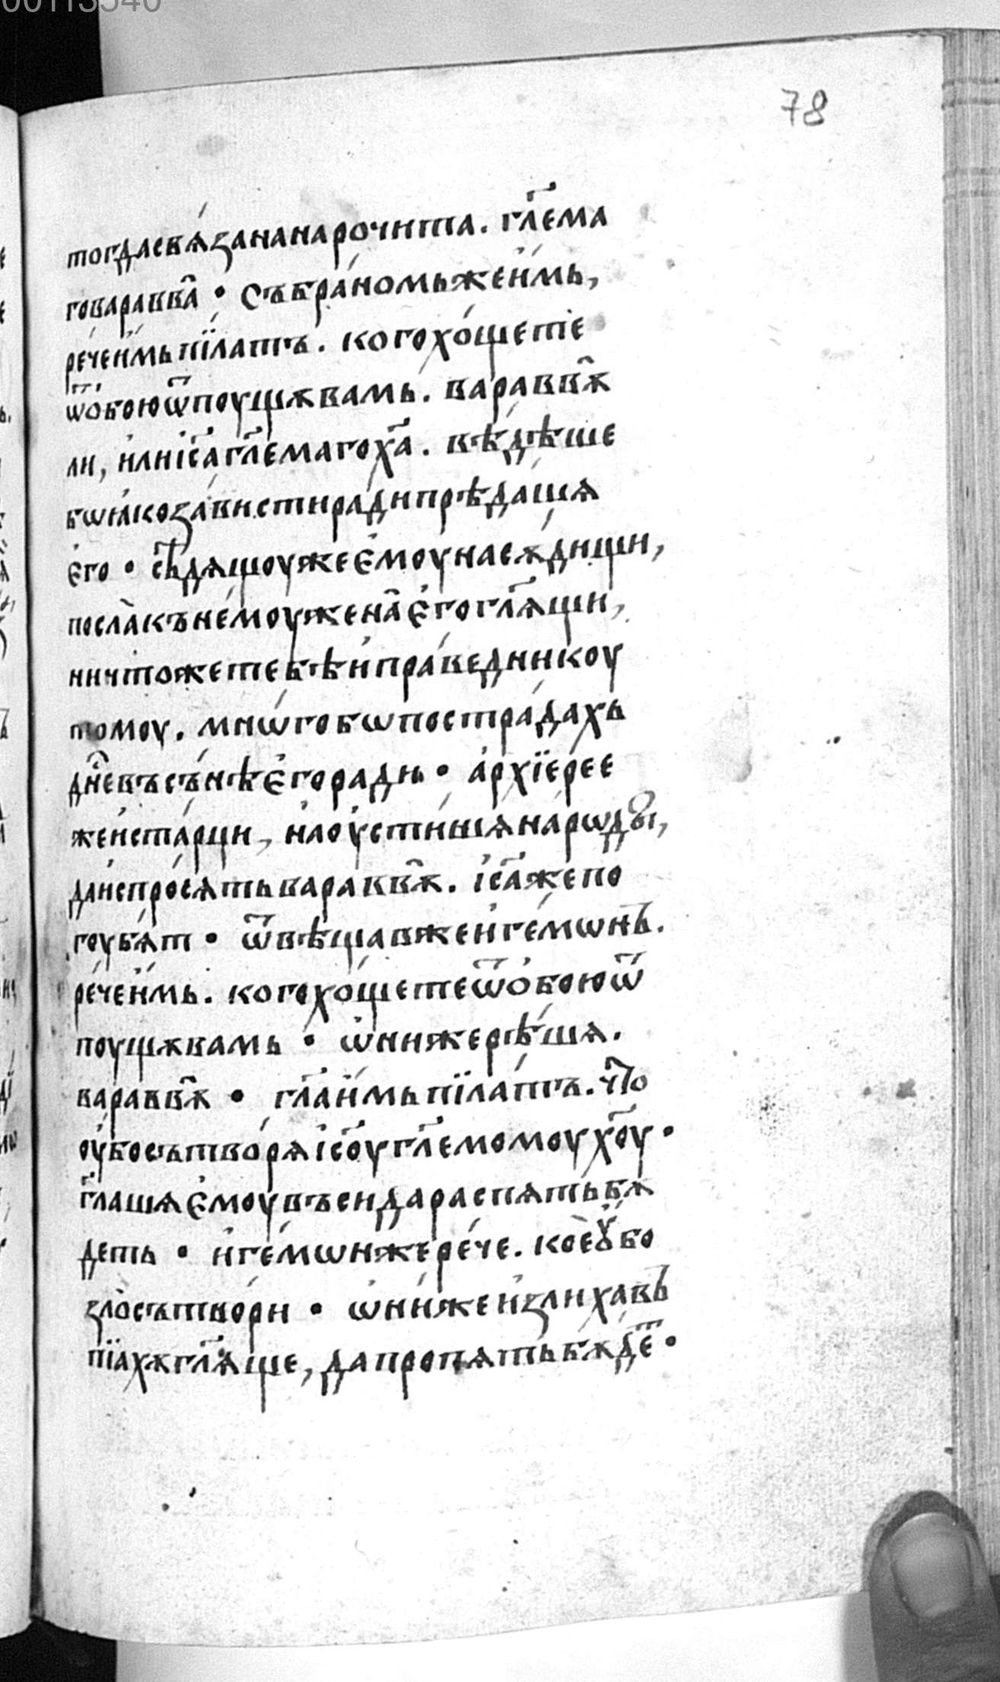 00113540
78
тогдасвѧ́зананарочита. гл҃ема
говаравва̑ • Събра́номьжеи́мь,
ре́чеи́мьпїла́тъ. когохо́щете
ѿо́боюѿпоущѫвамь. вараввѫ̑
ли, и҆лиі҆с҃агл҃емагох҃а. вѣ́дѣше
бѡꙗ҆коза́вистира́дипрѣда́шѧ
е҆го • сѣ́дѧщоужее҆моунасѫ́дищи,
посла̀къне́моужена̑е҆гогл҃ѧщи,
ничтожетебѣи҆пра́веднникоу
томоу. мнѡ́гобѡпострада́хь
дн҃евъсъ́нѣе҆горади • а҆рхїере́е
жеи҆ста́рци, наоу҆сти́шѧнарѡ́ды,
даи҆спро́сѧтьвараввѫ̑. і҆с҃ажепо
гоубѧ́т • ѿвѣщавжеи҆ге́мѡнъ.
ре́чеи́мь. когохо́щетеѿо́боюѿ
поущѫвамь • ѡ҆нижерѣ́шѧ.
вараввѫ̑ • гл҃аи́мьпїла́тъ. что̀
оу҆босътво́рѧі҆с҃оугл҃емомоух҃оу •
гл҃ашѧе҆моувъсидараспѧ́тьбѫ
деть • и҆ге́мѡнжере́че. коеꙋ҆́бо
зло̀сътвори • ѡ҆ниже́и҆злихавъ
пїахѫгл҃ѧще, дапропѧ́тьбѫде҃т •